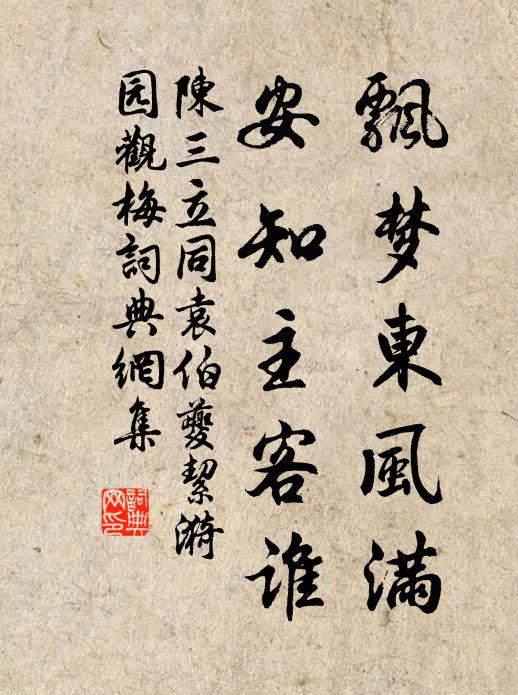 飄梦東風滿
安知主客誰
陳三立同袁伯夔絜漪
园觀梅詞典網集
詞典网印